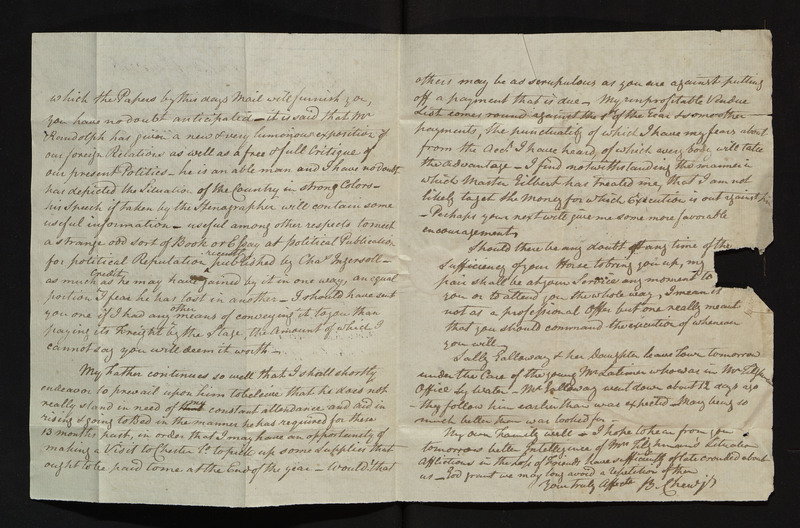 which the Papers by this days Mail will furnish you,
you have no doubt anticipated - it is said that Mr
Randolph has given a new & very luminous exposition of
our foreign Relations as well as a free & full Critique of
our present Politics - he is an able man and I have no doubt
has depicted the Situation of the Country in strong Colors -
his Speech if taken by the Stenographer will contain some
useful information - useful among other respects to such
a strange odd sort of Book or Essay at political Publication
for political Reputation recently published by Chas Ingersoll -
as much as he may have Credit gained by it in one way, an equal
portion I fear he has lost in another - I should have sent
you one if I had any other means of conveying it to you than
paying its Freight by the Stage, the Amount of which I
cannot say you will deem it worth -
My father continues so well that I shall shortly
endeavor to prevail upon him to believe that he does not
really stand in need of constant attendance and aid in
rising & going to Bed in the manner he has required for these
13 months past, in order that I may have an opportunity of
making a Visit to Chester Co to pick up some supplies that
ought to be paid come at the End of the year - Would that
others may be as scrupulous as you are against putting
off a payment that is due - My unprofitable Vendue
List comes round against the 1st of the Year & some other
payments, the punctuality of which I have my fears about
from the Acct I have heard, of which every body will take
the advantage - I find notwithstanding the manner in
which Master Gilbert has treated me, that I am not
likely to get the Money for which Execution is out against him
- Perhaps your next will give me some more favorable
encouragements
Should there be any doubt at any time of the
sufficiency of your Horse to bring you up, my
pair shall be at your Service any moment to
you or to attend you the whole way, I mean it
not as a professional Offer but one really meant
that you should command the execution of whenever
you will -
Sally Galloway & her Daughter leave Town tomorrow
under the Care of the young Mr Latimer who was in Mr
Office by water - Mr Galloway went down about 12 days ago
- they follow him earlier than was expected - Mary being so
much better than was looked for -
My own Family well - I hope to hear from you
tomorrow better Intelligence of Mrs Tilghman's Situation
Afflictions in the Loss of Friends have sufficiently of late crowded about
us - God grant we may long avoid a repetition of them
Yours truly Affecte B. Chew Jr